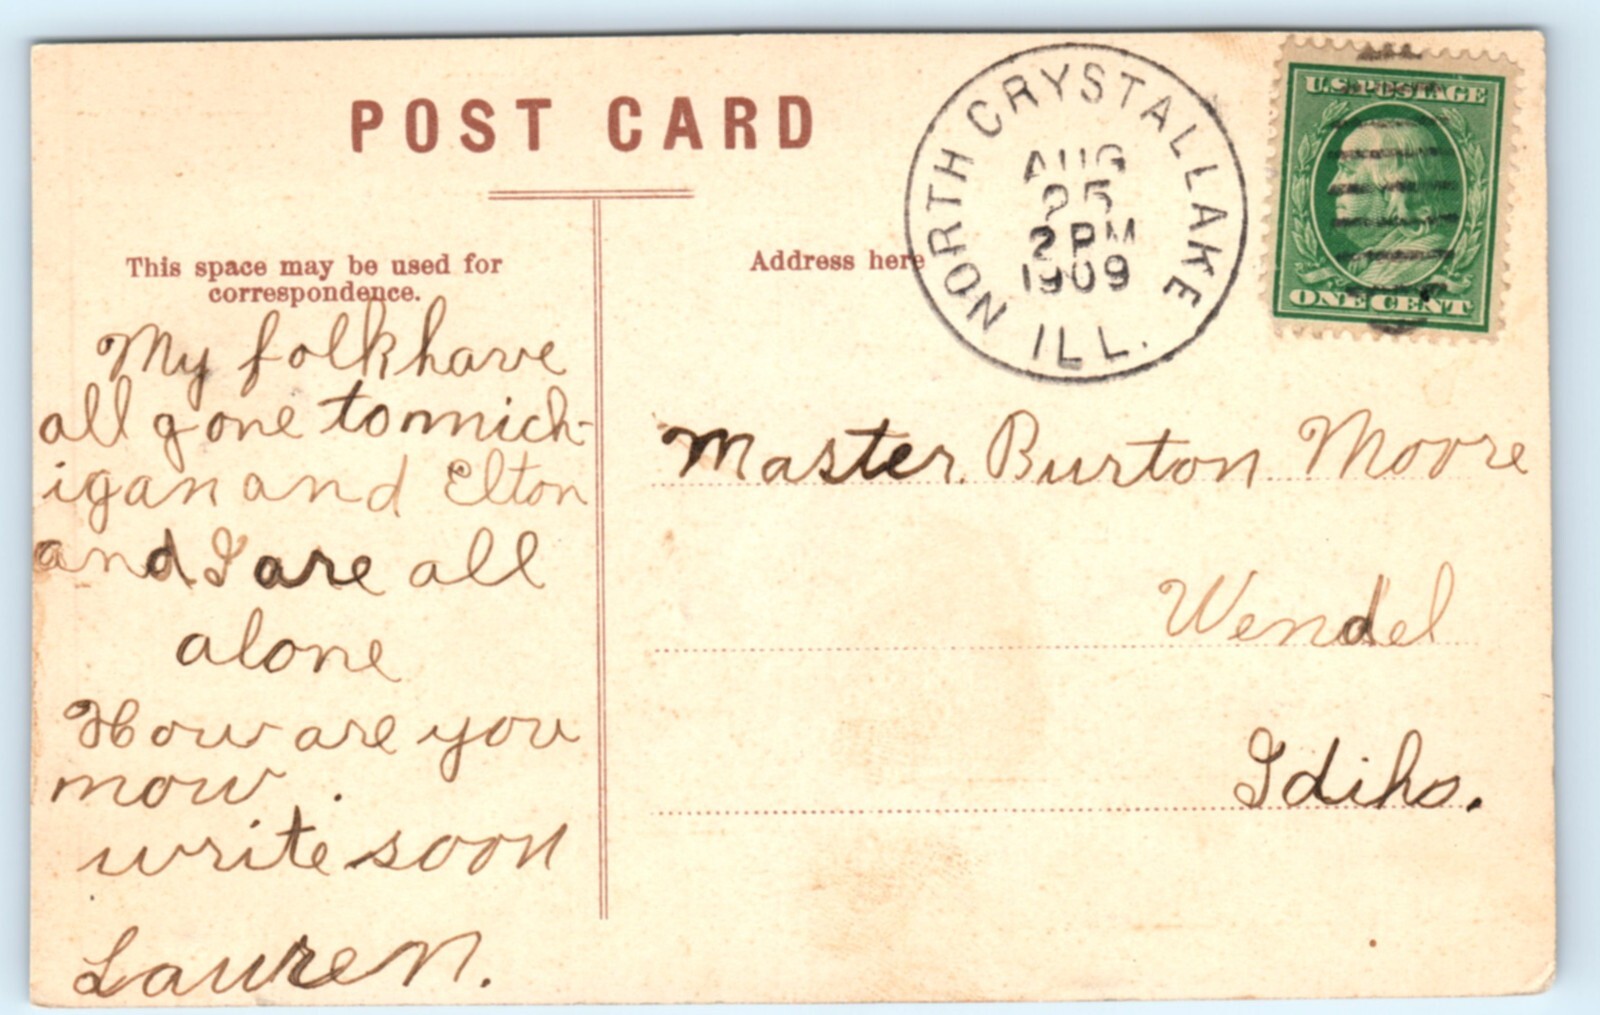 POST CARD
This space may be used for
correspondence.
My folk have
all gone to mich-
igan and Elton
and I are all
alone
How are you
now.
write soon
Lauren.
Address here
NORTH CRYSTAL LAKE
ILL.
AUG
25
2 PM
1909
U.S. POSTAGE
ONE CENT
Master Burton Moore
Wendel
Idiho.